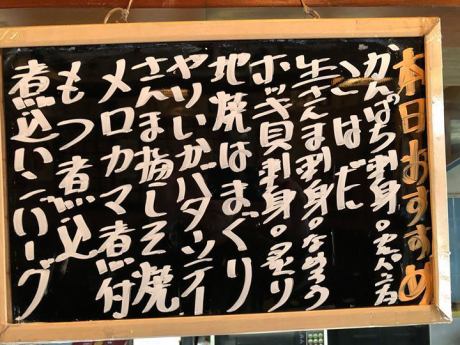 本日おすすめ
かんぱち刺身。
こはだ
生さんま刺身。なめろう
ホッキ貝刺身。炙り
地焼はまぐり
やりいかバターソテー
さんま梅しそ焼
メロカマ煮付
もつ煮込
煮込ハンバーグ